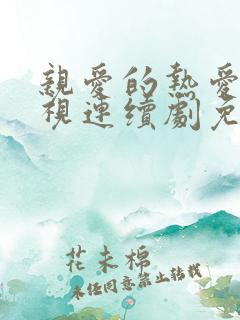 親愛的熱愛
視連續劇免
花未棉
未经同意禁止转载